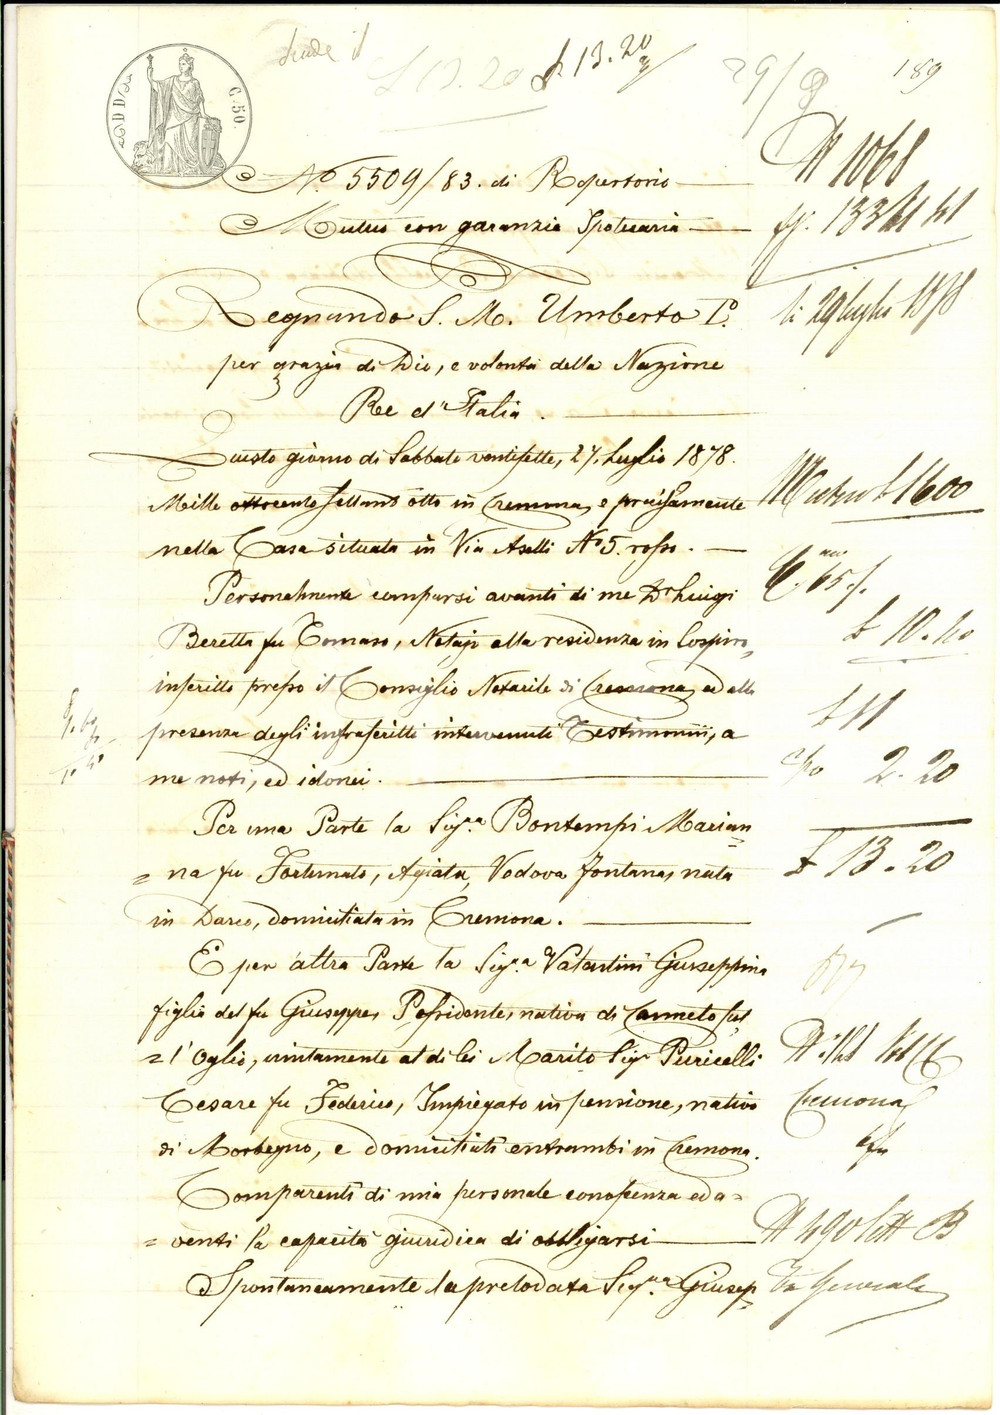 C. 50.
£ 13. 20
189
N° 5509/83. di Repertorio
N 1068
Mutuo con garanzia Ipotecaria
Regnando S. M. Umberto I°.
li 29 luglio 1878
per grazia di Dio, e volontà della Nazione
Re d'Italia.
Questo giorno di Sabbato ventisette, 27, Luglio 1878.
Mille ottocento settant'otto in Cremona, e precisamente
Mutuo £ 1600
nella Casa situata in Via Aselli N° 5. rosso.
Personalmente comparsi avanti di me Dr Luigi
Beretta fu Tomaso, Notajo alla residenza in Sospiro,
inscritto presso il Consiglio Notarile di Cremona, ed alla
presenza degli infrascritti intervenuti Testimonii, a
£ 11
me noti, ed idonei.
2. 20
Per una Parte la Sig.ra Bontempi Marian=
£ 13. 20
=na fu Fortunato, Agiata, Vedova Fontana, nata
in Darco, domiciliata in Cremona.
E per altra Parte la Sig.ra Valentini Giuseppina
figlia del fu Giuseppe, Possidente, nativa di Canneto sul=
=l'Oglio, unitamente al di lei Marito Sig.r Puricelli
Cesare fu Federico, Impiegato in pensione, nativo
Cremona
di Morbegno, e domiciliati entrambi in Cremona.
Comparenti di mia personale conoscenza ed a=
=venti la capacità giuridica di obbligarsi
Spontaneamente la prelodata Sig.ra Giusep=